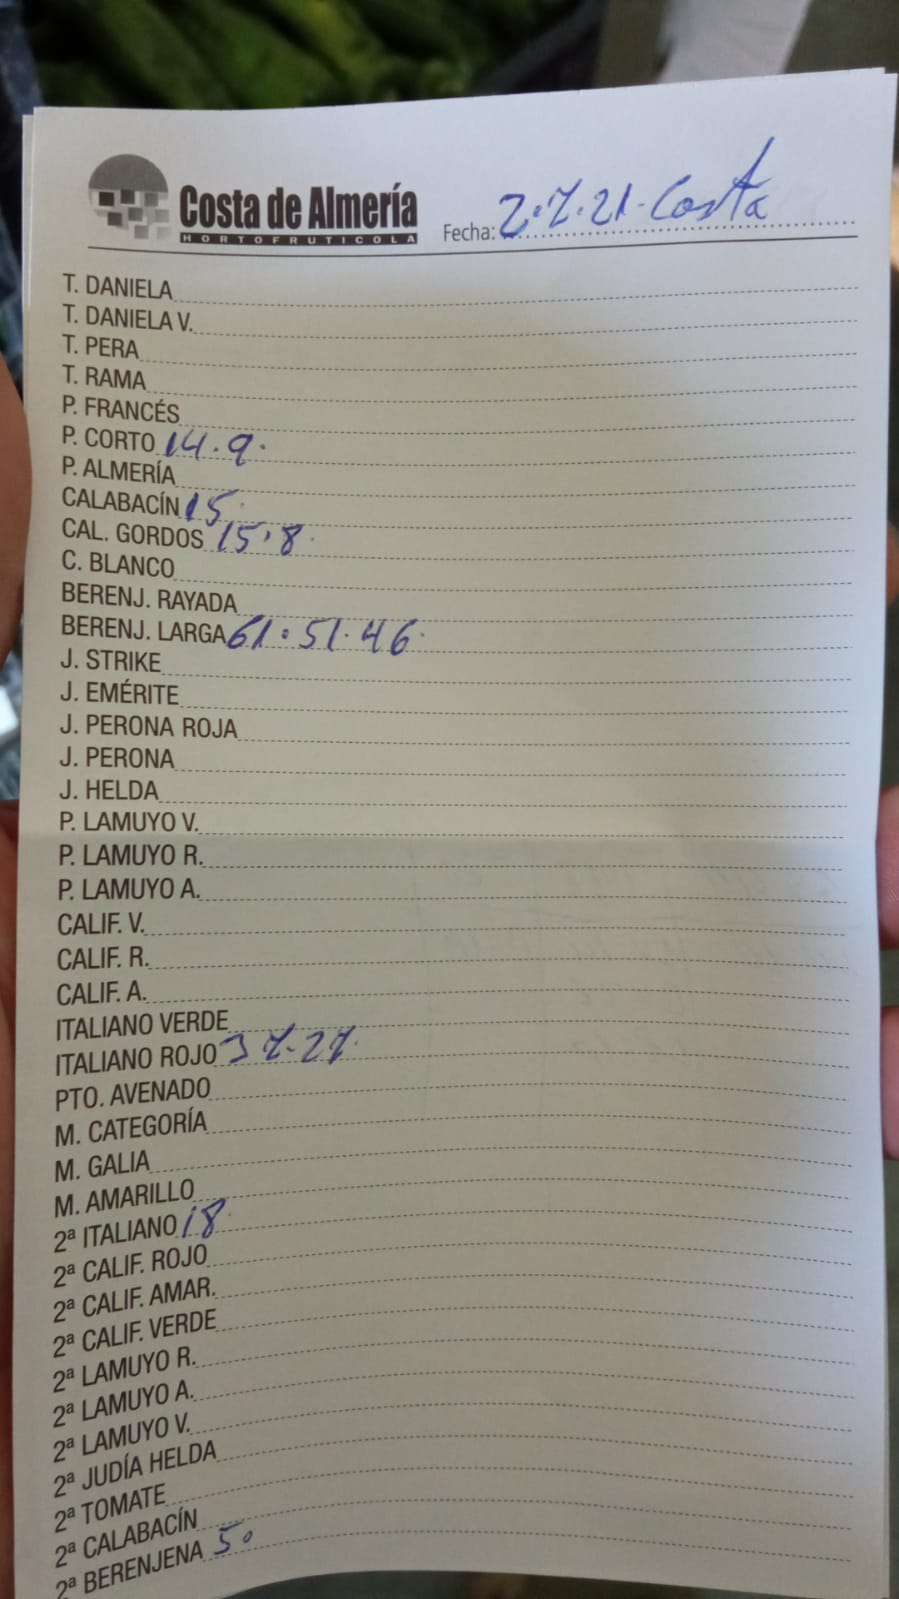 Costa de Almería
HORTOFRUTICOLA
Fecha: 2.7.21. Costa
T. DANIELA
T. DANIELA V.
T. PERA
T. RAMA
P. FRANCÉS
P. CORTO 14.9.
P. ALMERÍA
CALABACÍN 15.
CAL. GORDOS 15.8.
C. BLANCO
BERENJ. RAYADA
BERENJ. LARGA 61.51.46.
J. STRIKE
J. EMÉRITE
J. PERONA ROJA
J. PERONA
J. HELDA
P. LAMUYO V.
P. LAMUYO R.
P. LAMUYO A.
CALIF. V.
CALIF. R.
CALIF. A.
ITALIANO VERDE
ITALIANO ROJO 37.27.
PTO. AVENADO
M. CATEGORÍA
M. GALIA
M. AMARILLO
2ª ITALIANO 18.
2ª CALIF. ROJO
2ª CALIF. AMAR.
2ª CALIF. VERDE
2ª LAMUYO R.
2ª LAMUYO A.
2ª LAMUYO V.
2ª JUDÍA HELDA
2ª TOMATE
2ª CALABACÍN
2ª BERENJENA 50